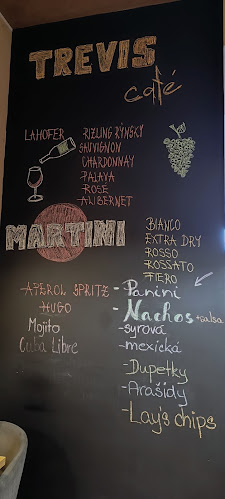 TREVIS
café
LAHOFER
RIZLING RÝNSKY
SAUVIGNON
CHARDONNAY
PALAVA
ROSE
ALIBERNET
MARTINI
BIANCO
EXTRA DRY
ROSSO
ROSSATO
FIERO
APEROL SPRITZ
HUGO
Mojito
Cuba Libre
- Panini
- Nachos +salsa
- syrová
- mexická
- Dupetky
- Arašidy
- Lay's chips